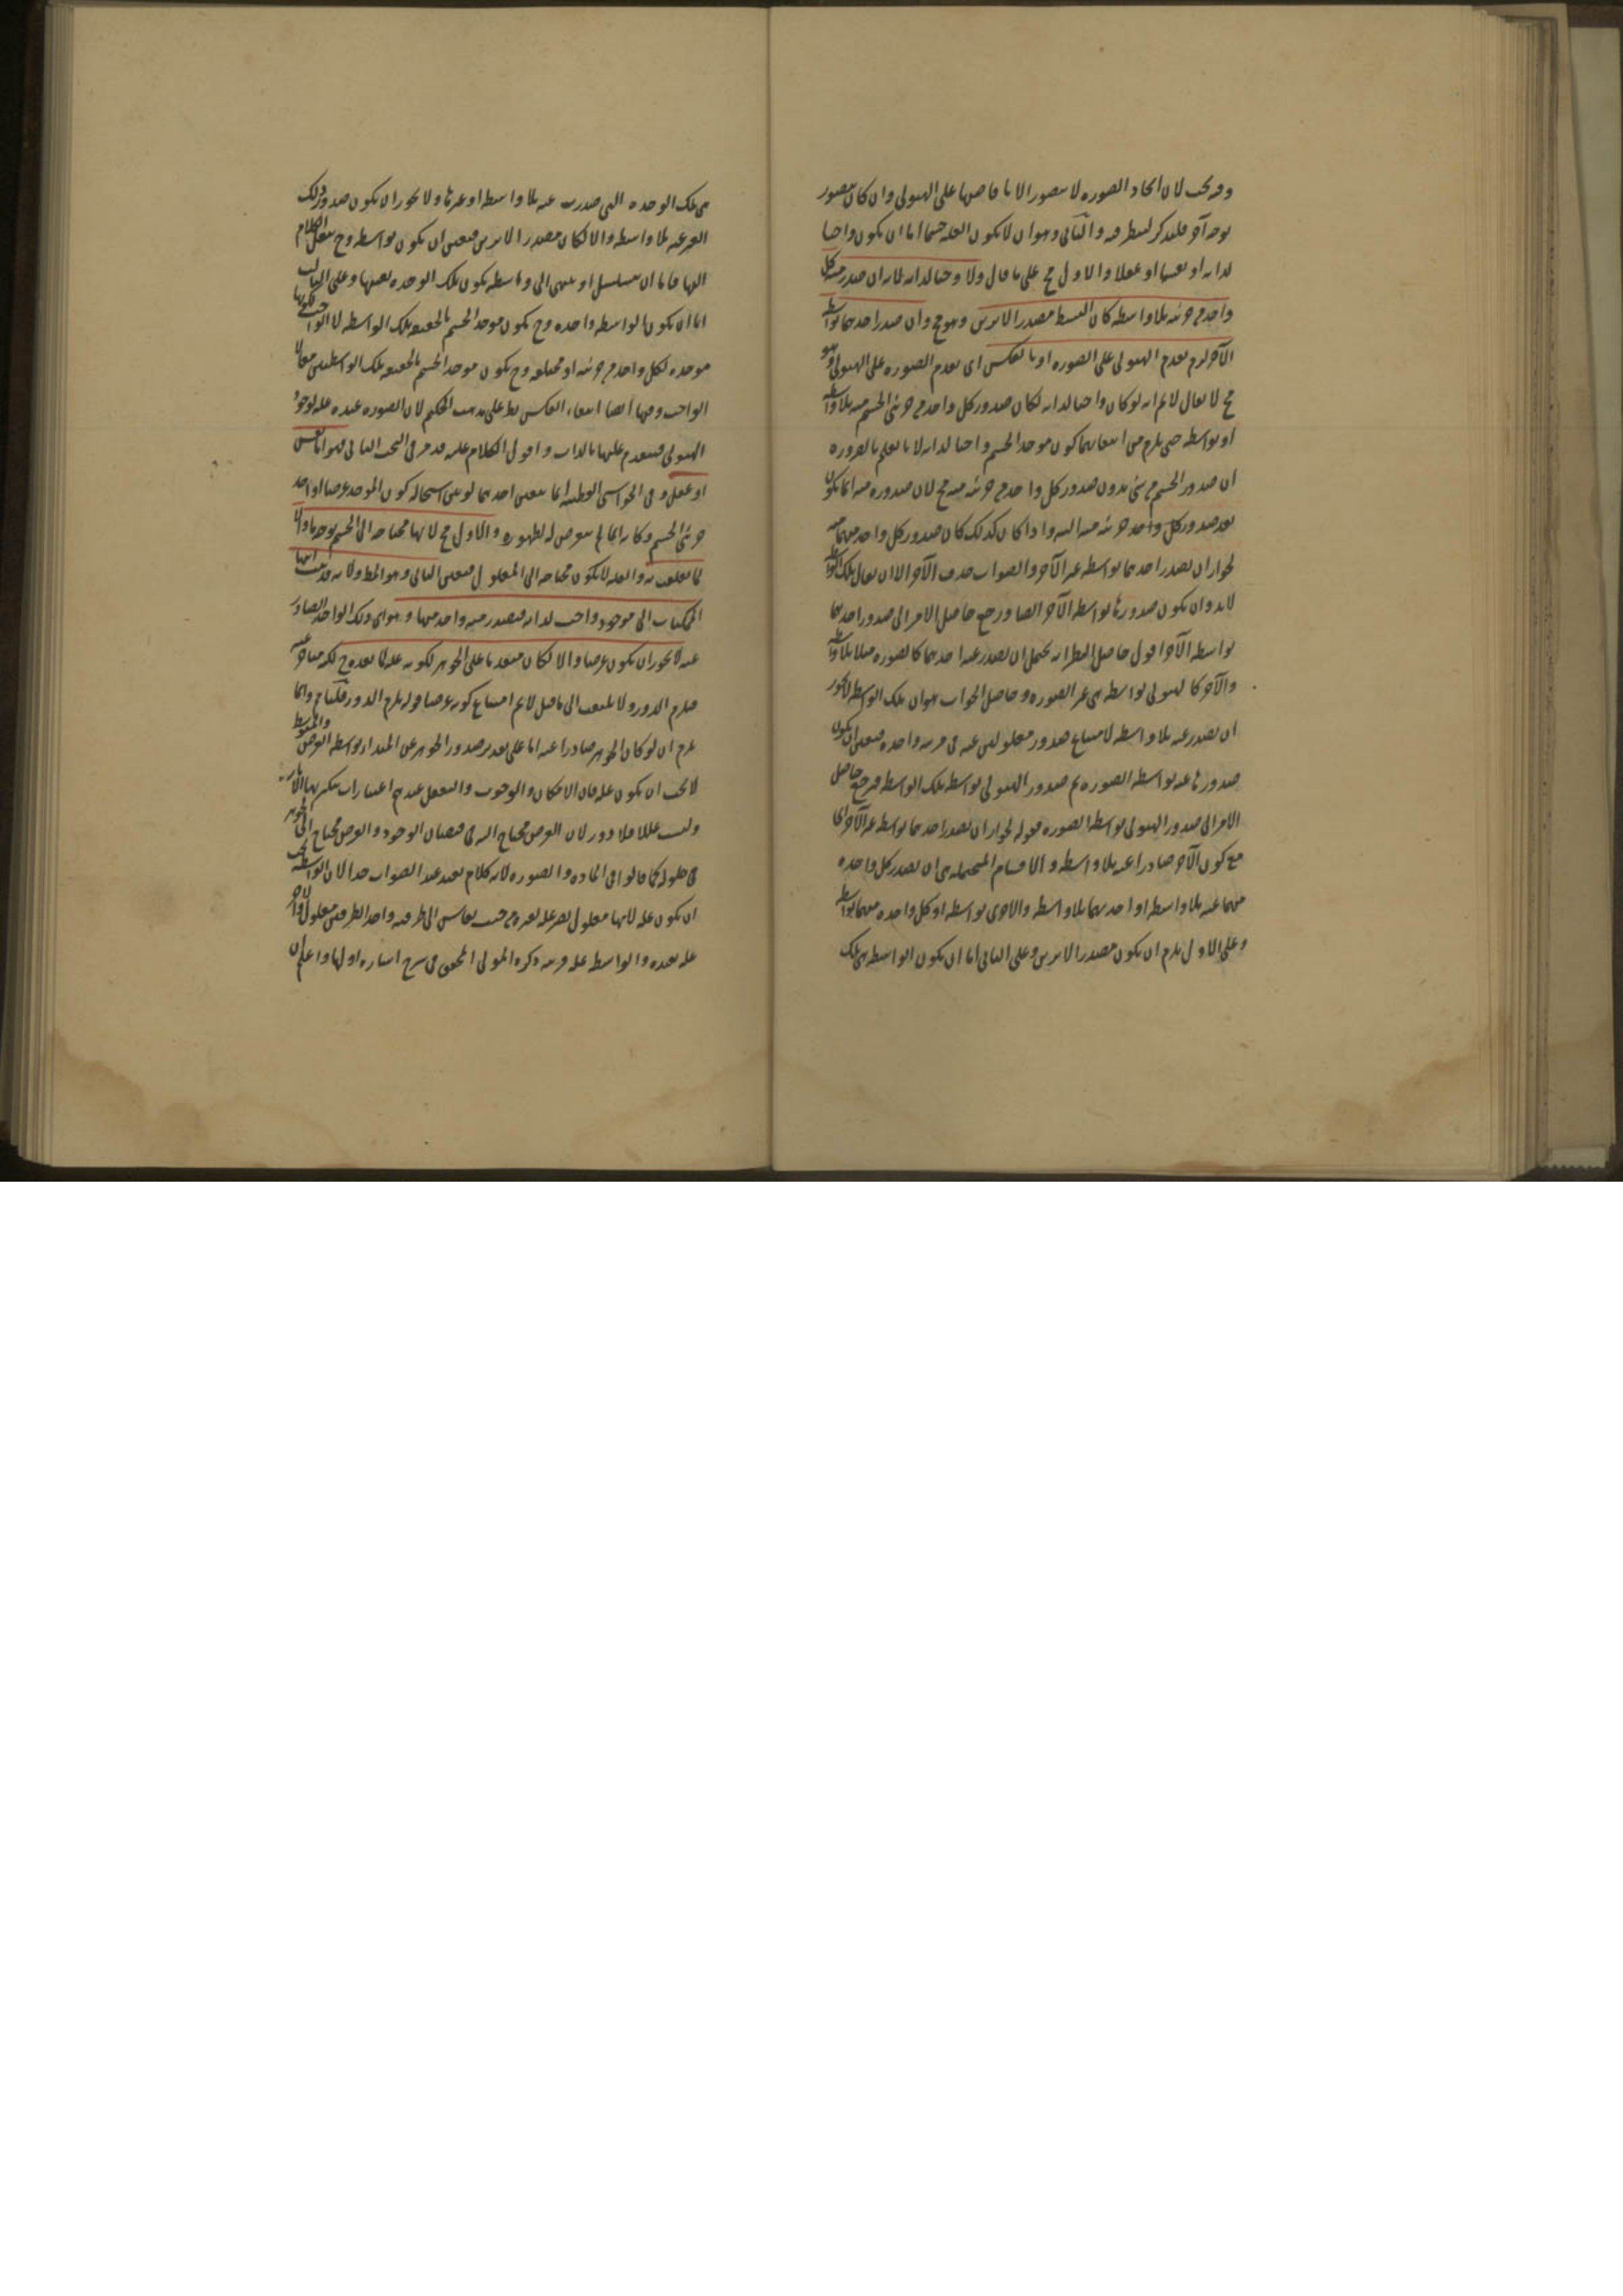 وفيه بحث لان ايجاد الصورة لا يتصور الا بافاضتها على الهيولى وان كان يتصور
بوجه آخر فليذكر لينظر فيه والثانى وهو ان لا يكون العلة جسما اما ان يكون واجبا
لذاته او نفسا او عقلا والاول مح على ما قال ولا واجبا لذاته لانه ان صدر منه كل
واحد من جزئيه بلا واسطة كان البسيط مصدر الاثرين وهو مح وان صدر احدهما بواسطة
الآخر لزم تقدم الهيولى على الصورة او بالعكس اى تقدم الصورة على الهيولى وهو
مح لا يقال لا نم انه لو كان واجبا لذاته لكان صدور كل واحد من جزئى الجسم منه بلا واسطة
او بواسطة حتى يلزم من انتفائهما كون موجد الجسم واجبا لذاته لانا نعلم بالضرورة
ان صدور الجسم من شئ بدون صدور كل واحد من جزئيه منه مح لان صدوره منه انما يكون
بعد صدور كل واحد جزئيه منه البتة واذا كان كذلك كان صدور كل واحد منهما منه
لجواز ان يصدر احدهما بواسطة غير الآخر والصواب حذف الآخر الا ان يقال تلك الواسطة
لابد وان يكون صدورها بواسطة الآخر ايضا ورجع حاصل الامر الى صدور احدهما
بواسطة الآخر اقول حاصل النظر انه يحتمل ان يصدر عنه احدهما كالصورة مثلا بلا واسطة
والآخر كالهيولى بواسطة هى غير الصورة وحاصل الجواب هو ان تلك الواسطة لا يجوز
ان يصدر عنه بلا واسطة لامتناع صدور معلولين عنه فى مرتبة واحدة فتعين ان يكون
صدورها عنه بواسطة الصورة ثم صدور الهيولى بواسطة تلك الواسطة فرجع حاصل
الامر الى صدور الهيولى بواسطة الصورة فقوله لجواز ان يصدر احدهما بواسطة غير الآخر اى
مع كون الآخر صادرا عنه بلا واسطة والاقسام المحتملة هى ان يصدر كل واحدة
منهما عنه بلا واسطة او احديهما بلا واسطة والاخرى بواسطة او كل واحدة منهما بواسطة
وعلى الاول يلزم ان يكون مصدر الاثرين وعلى الثانى اما ان يكون الواسطة هى تلك
هى تلك الوحدة التى صدرت عنه بلا واسطة او غيرها ولا يجوز ان يكون صدور ذلك
الغير عنه بلا واسطة والا لكان مصدر الاثرين فتعين ان يكون بواسطة وح ننقل الكلام
اليها فاما ان يتسلسل او ينتهى الى واسطة يكون تلك الوحدة بعينها وعلى الثالث
اما ان يكون الواسطة واحدة وح يكون موجد الجسم بالحقيقة تلك الواسطة لا الواجب لكونها
موجدة لكل واحد من جزئيه او مختلفة وح يكون موجد الجسم بالحقيقة تلك الواسطتين معا لا
الواجب وفيها ايضا انتفاء العكس نظر على مذهب الحكيم لان الصورة عنده علة لوجود
الهيولى فيتقدم عليها بالذات واقول الكلام عليه قد مر فى البحث الثانى فهو اما نفس
او عقل وفى الحواشى القطبية انما يتعين احدهما لو تبين استحالة كون الموجد عرضا او احد
جزئى الجسم وكانه انما لم يتعرض له لظهوره والاول مح لانها محتاجة الى الجسم بوجه ما والا
لما تعلقت به والعلة لا يكون محتاجة الى المعلول فتعين الثانى وهو المط ولانه قد ثبت انتهاء
الممكنات الى موجود واجب لذاته فيصدر منه واحد منها وهو اى ذلك الواحد الصادر
عنه لا يجوز ان يكون عرضا والا لكان متقدما على الجوهر لكونه علة لما بعده وح لكنه متأخر عنه
فيلزم الدور ولا يلتفت الى ما قيل لا نم امتناع كونه عرضا قوله يلزم الدور قلنا ح وانما
يلزم ان لو كان الجوهر صادرا عنه اما على تقدير صدور الجوهر عن المبدا بواسطة العرض والمتوسط
لا يجب ان يكون علة فان الامكان والوجوب والتعقل عندهم اعتبارات يتكثر بها الآثار
وليست عللا فلا دور لان العرض محتاج اليه فى فيضان الوجود والعرض محتاج الى الجوهر
فى حلوله كما قالوا فى المادة والصورة لانه كلام بعيد عن الصواب جدا لان الواسطة يجب
ان يكون علة لانها معلول يصير علة لغيره من حيث يقاس الى طرفيه واحد الطرفين معلول والآخر
علة بعيدة والواسطة علة قريبة ذكره المولى المحقق فى شرح اشارة اولها واعلم ان